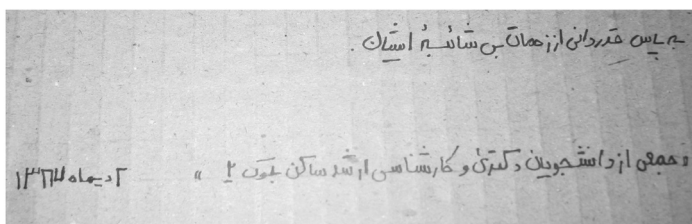 به پاس قدردانی از زحمات بی شائبهٔ ایشان.
« جمعی از دانشجویان دکتری و کارشناسی ارشد ساکن بلوک ۲ » ۲ دیماه ۱۳۶۴